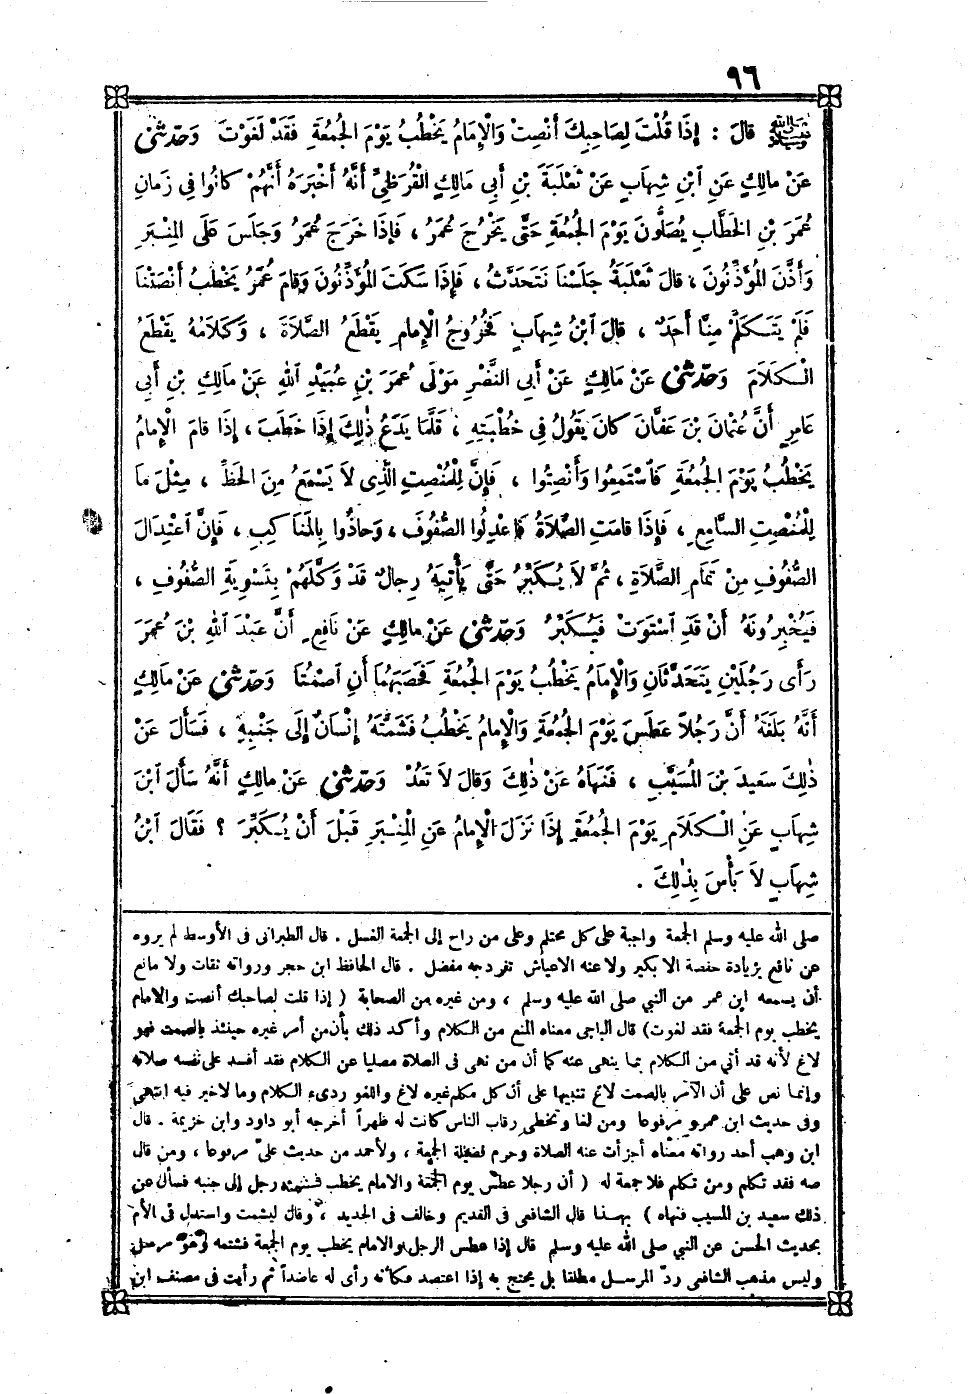 ٩٦
ﷺ قَالَ : إِذَا قُلْتَ لِصَاحِبِكَ أَنْصِتْ وَالْإِمَامُ يَخْطُبُ يَوْمَ الْجُمُعَةِ فَقَدْ لَغَوْتَ وَحَدَّثَنِي
عَنْ مَالِكٍ عَنِ ابْنِ شِهَابٍ عَنْ ثَعْلَبَةَ بْنِ أَبِي مَالِكٍ الْقُرَظِيِّ أَنَّهُ أَخْبَرَهُ أَنَّهُمْ كَانُوا فِي زَمَانِ
عُمَرَ بْنِ الْخَطَّابِ يُصَلُّونَ يَوْمَ الْجُمُعَةِ حَتَّى يَخْرُجَ عُمَرُ ، فَإِذَا خَرَجَ عُمَرُ وَجَلَسَ عَلَى الْمِنْبَرِ
وَأَذَّنَ الْمُؤَذِّنُونَ ، قَالَ ثَعْلَبَةُ جَلَسْنَا نَتَحَدَّثُ ، فَإِذَا سَكَتَ الْمُؤَذِّنُونَ وَقَامَ عُمَرُ يَخْطُبُ أَنْصَتْنَا
فَلَمْ يَتَكَلَّمْ مِنَّا أَحَدٌ ، قَالَ ابْنُ شِهَابٍ فَخُرُوجُ الْإِمَامِ يَقْطَعُ الصَّلَاةَ ، وَكَلَامُهُ يَقْطَعُ
الْكَلَامَ وَحَدَّثَنِي عَنْ مَالِكٍ عَنْ أَبِي النَّضْرِ مَوْلَى عُمَرَ بْنِ عُبَيْدِ اللهِ عَنْ مَالِكِ بْنِ أَبِي
عَامِرٍ أَنَّ عُثْمَانَ بْنَ عَفَّانَ كَانَ يَقُولُ فِي خُطْبَتِهِ ، قَلَّمَا يَدَعُ ذٰلِكَ إِذَا خَطَبَ ، إِذَا قَامَ الْإِمَامُ
يَخْطُبُ يَوْمَ الْجُمُعَةِ فَاسْتَمِعُوا وَأَنْصِتُوا ، فَإِنَّ لِلْمُنْصِتِ الَّذِي لَا يَسْمَعُ مِنَ الْحَظِّ ، مِثْلَ مَا
لِلْمُنْصِتِ السَّامِعِ ، فَإِذَا قَامَتِ الصَّلَاةُ فَاعْدِلُوا الصُّفُوفَ ، وَحَاذُوا بِالْمَنَاكِبِ ، فَإِنَّ اعْتِدَالَ
الصُّفُوفِ مِنْ تَمَامِ الصَّلَاةِ ، ثُمَّ لَا يُكَبِّرُ حَتَّى يَأْتِيَهُ رِجَالٌ قَدْ وَكَّلَهُمْ بِتَسْوِيَةِ الصُّفُوفِ ،
فَيُخْبِرُونَهُ أَنْ قَدِ اسْتَوَتْ فَيُكَبِّرُ وَحَدَّثَنِي عَنْ مَالِكٍ عَنْ نَافِعٍ أَنَّ عَبْدَ اللهِ بْنَ عُمَرَ
رَأَى رَجُلَيْنِ يَتَحَدَّثَانِ وَالْإِمَامُ يَخْطُبُ يَوْمَ الْجُمُعَةِ فَحَصَبَهُمَا أَنِ اصْمُتَا وَحَدَّثَنِي عَنْ مَالِكٍ
أَنَّهُ بَلَغَهُ أَنَّ رَجُلًا عَطَسَ يَوْمَ الْجُمُعَةِ وَالْإِمَامُ يَخْطُبُ فَشَمَّتَهُ إِنْسَانٌ إِلَى جَنْبِهِ ، فَسَأَلَ عَنْ
ذٰلِكَ سَعِيدَ بْنَ الْمُسَيِّبِ ، فَنَهَاهُ عَنْ ذٰلِكَ وَقَالَ لَا تَعُدْ وَحَدَّثَنِي عَنْ مَالِكٍ أَنَّهُ سَأَلَ ابْنَ
شِهَابٍ عَنِ الْكَلَامِ يَوْمَ الْجُمُعَةِ إِذَا نَزَلَ الْإِمَامُ عَنِ الْمِنْبَرِ قَبْلَ أَنْ يُكَبِّرَ ؟ فَقَالَ ابْنُ
شِهَابٍ لَا بَأْسَ بِذٰلِكَ .
صلى الله عليه وسلم الجمعة واجبة على كل محتلم وعلى من راح إلى الجمعة الغسل . قال الطبرانى فى الأوسط لم يروه
عن نافع بزيادة حفصة الا بكير ولا عنه الاعياش تفرد به مفضل . قال الحافظ ابن حجر ورواته ثقات ولا مانع
أن يسمعه ابن عمر من النبي صلى الله عليه وسلم ، ومن غيره من الصحابة ( إذا قلت لصاحبك أنصت والامام
يخطب يوم الجمعة فقد لغوت) قال الباجى معناه المنع من الكلام وأكد ذلك بأن من أمر غيره حينئذ بالصمت فهو
لاغ لأنه قد أتي من الكلام بما ينهى عنه كما أن من نهى فى الصلاة مصليا عن الكلام فقد أفسد على نفسه صلاته
وإنما نص على أن الآمر بالصمت لاغ تنبيها على أن كل مكلم غيره لاغ واللغو ردىء الكلام وما لا خير فيه انتهى
وفى حديث ابن عمرو مرفوعا ومن لغا وتخطى رقاب الناس كانت له ظهراً أخرجه أبو داود وابن خزيمة . قال
ابن وهب أحد رواته معناه أجزأت عنه الصلاة وحرم لفضيلة الجمعة ، ولأحمد من حديث علىّ مرفوعا ، ومن قال
صه فقد تكلم ومن تكلم فلا جمعة له ( أن رجلا عطس يوم الجمعة والامام يخطب فشمته رجل إلى جنبه فسأل عن
ذلك سعيد بن المسيب فنهاه ) بهذا قال الشافعى فى القديم وخالف فى الجديد ، وقال ليشمت واستدل فى الأم
بحديث الحسن عن النبي صلى الله عليه وسلم قال إذا عطس الرجل والامام يخطب يوم الجمعة فشتمه وهو مرسل
وليس مذهب الشافعى ردّ المرسل مطلقا بل يحتج به إذا اعتضد فكأنه رأى له عاضداً ثم رأيت فى مصنف ابن